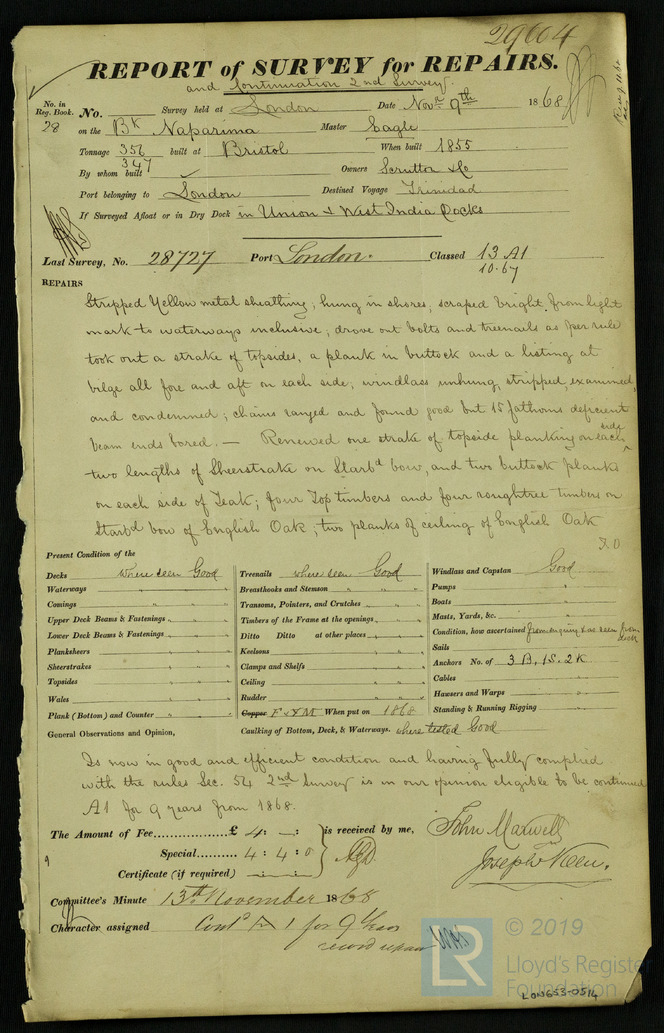 29664
REPORT of SURVEY for REPAIRS.
and Continuation 2nd Survey.
No. in Reg. Book. No. Survey held at London Date Novr 9th 1868
28 on the Bk Naparima Master Eagle
Tonnage 356 built at Bristol When built 1855
347
By whom built Owners Scrutton & Co
Port belonging to London Destined Voyage Trinidad
If Surveyed Afloat or in Dry Dock in Union & West India Docks
Last Survey, No. 28727 Port London. Classed 13 A1
10.67
REPAIRS
Stripped Yellow metal sheathing; hung in shores; scraped bright from light
mark to waterways inclusive; drove out bolts and treenails as per rule
took out a strake of topsides, a plank in buttock and a listing at
bilge all fore and aft on each side; windlass unhung, stripped, examined,
and condemned; chains ranged and found good but 15 fathoms deficient
beam ends bored. — Renewed one strake of topside planking on each side
two lengths of Sheerstrake on Starbd bow, and two buttock planks
on each side of Teak; four Top timbers and four roughtree timbers on
Starbd bow of English Oak; two planks of ceiling of English Oak
Present Condition of the
Decks where seen Good
Waterways " "
Comings " "
Upper Deck Beams & Fastenings " "
Lower Deck Beams & Fastenings " "
Planksheers " "
Sheerstrakes " "
Topsides " "
Wales " "
Plank (Bottom) and Counter " "
Treenails where seen Good
Breasthooks and Stemson " "
Transoms, Pointers, and Crutches " "
Timbers of the Frame at the openings " "
Ditto Ditto at other places " "
Keelsons " "
Clamps and Shelfs " "
Ceiling " "
Rudder " "
Copper F & YM When put on 1868
Windlass and Capstan Good
Pumps "
Boats "
Masts, Yards, &c. "
Condition, how ascertained from enquiry & as seen from deck
Sails "
Anchors No. of 3 B, 1S. 2K
Cables "
Hawsers and Warps "
Standing & Running Rigging "
Caulking of Bottom, Deck, & Waterways. where tested Good
General Observations and Opinion,
Is now in good and efficient condition and having fully complied
with the rules Sec. 54 2nd Survey is in our opinion eligible to be continued
A1 for 9 years from 1868.
The Amount of Fee £ 4 : — : is received by me,
Special 4 : 4 : 0
Certificate (if required)
John Maxwell
Joseph Keen.
Committee's Minute 13th November 1868
Character assigned Contd A 1 for 9 Years
© 2019
LR
Lloyd's Register
Foundation
LON653-0514